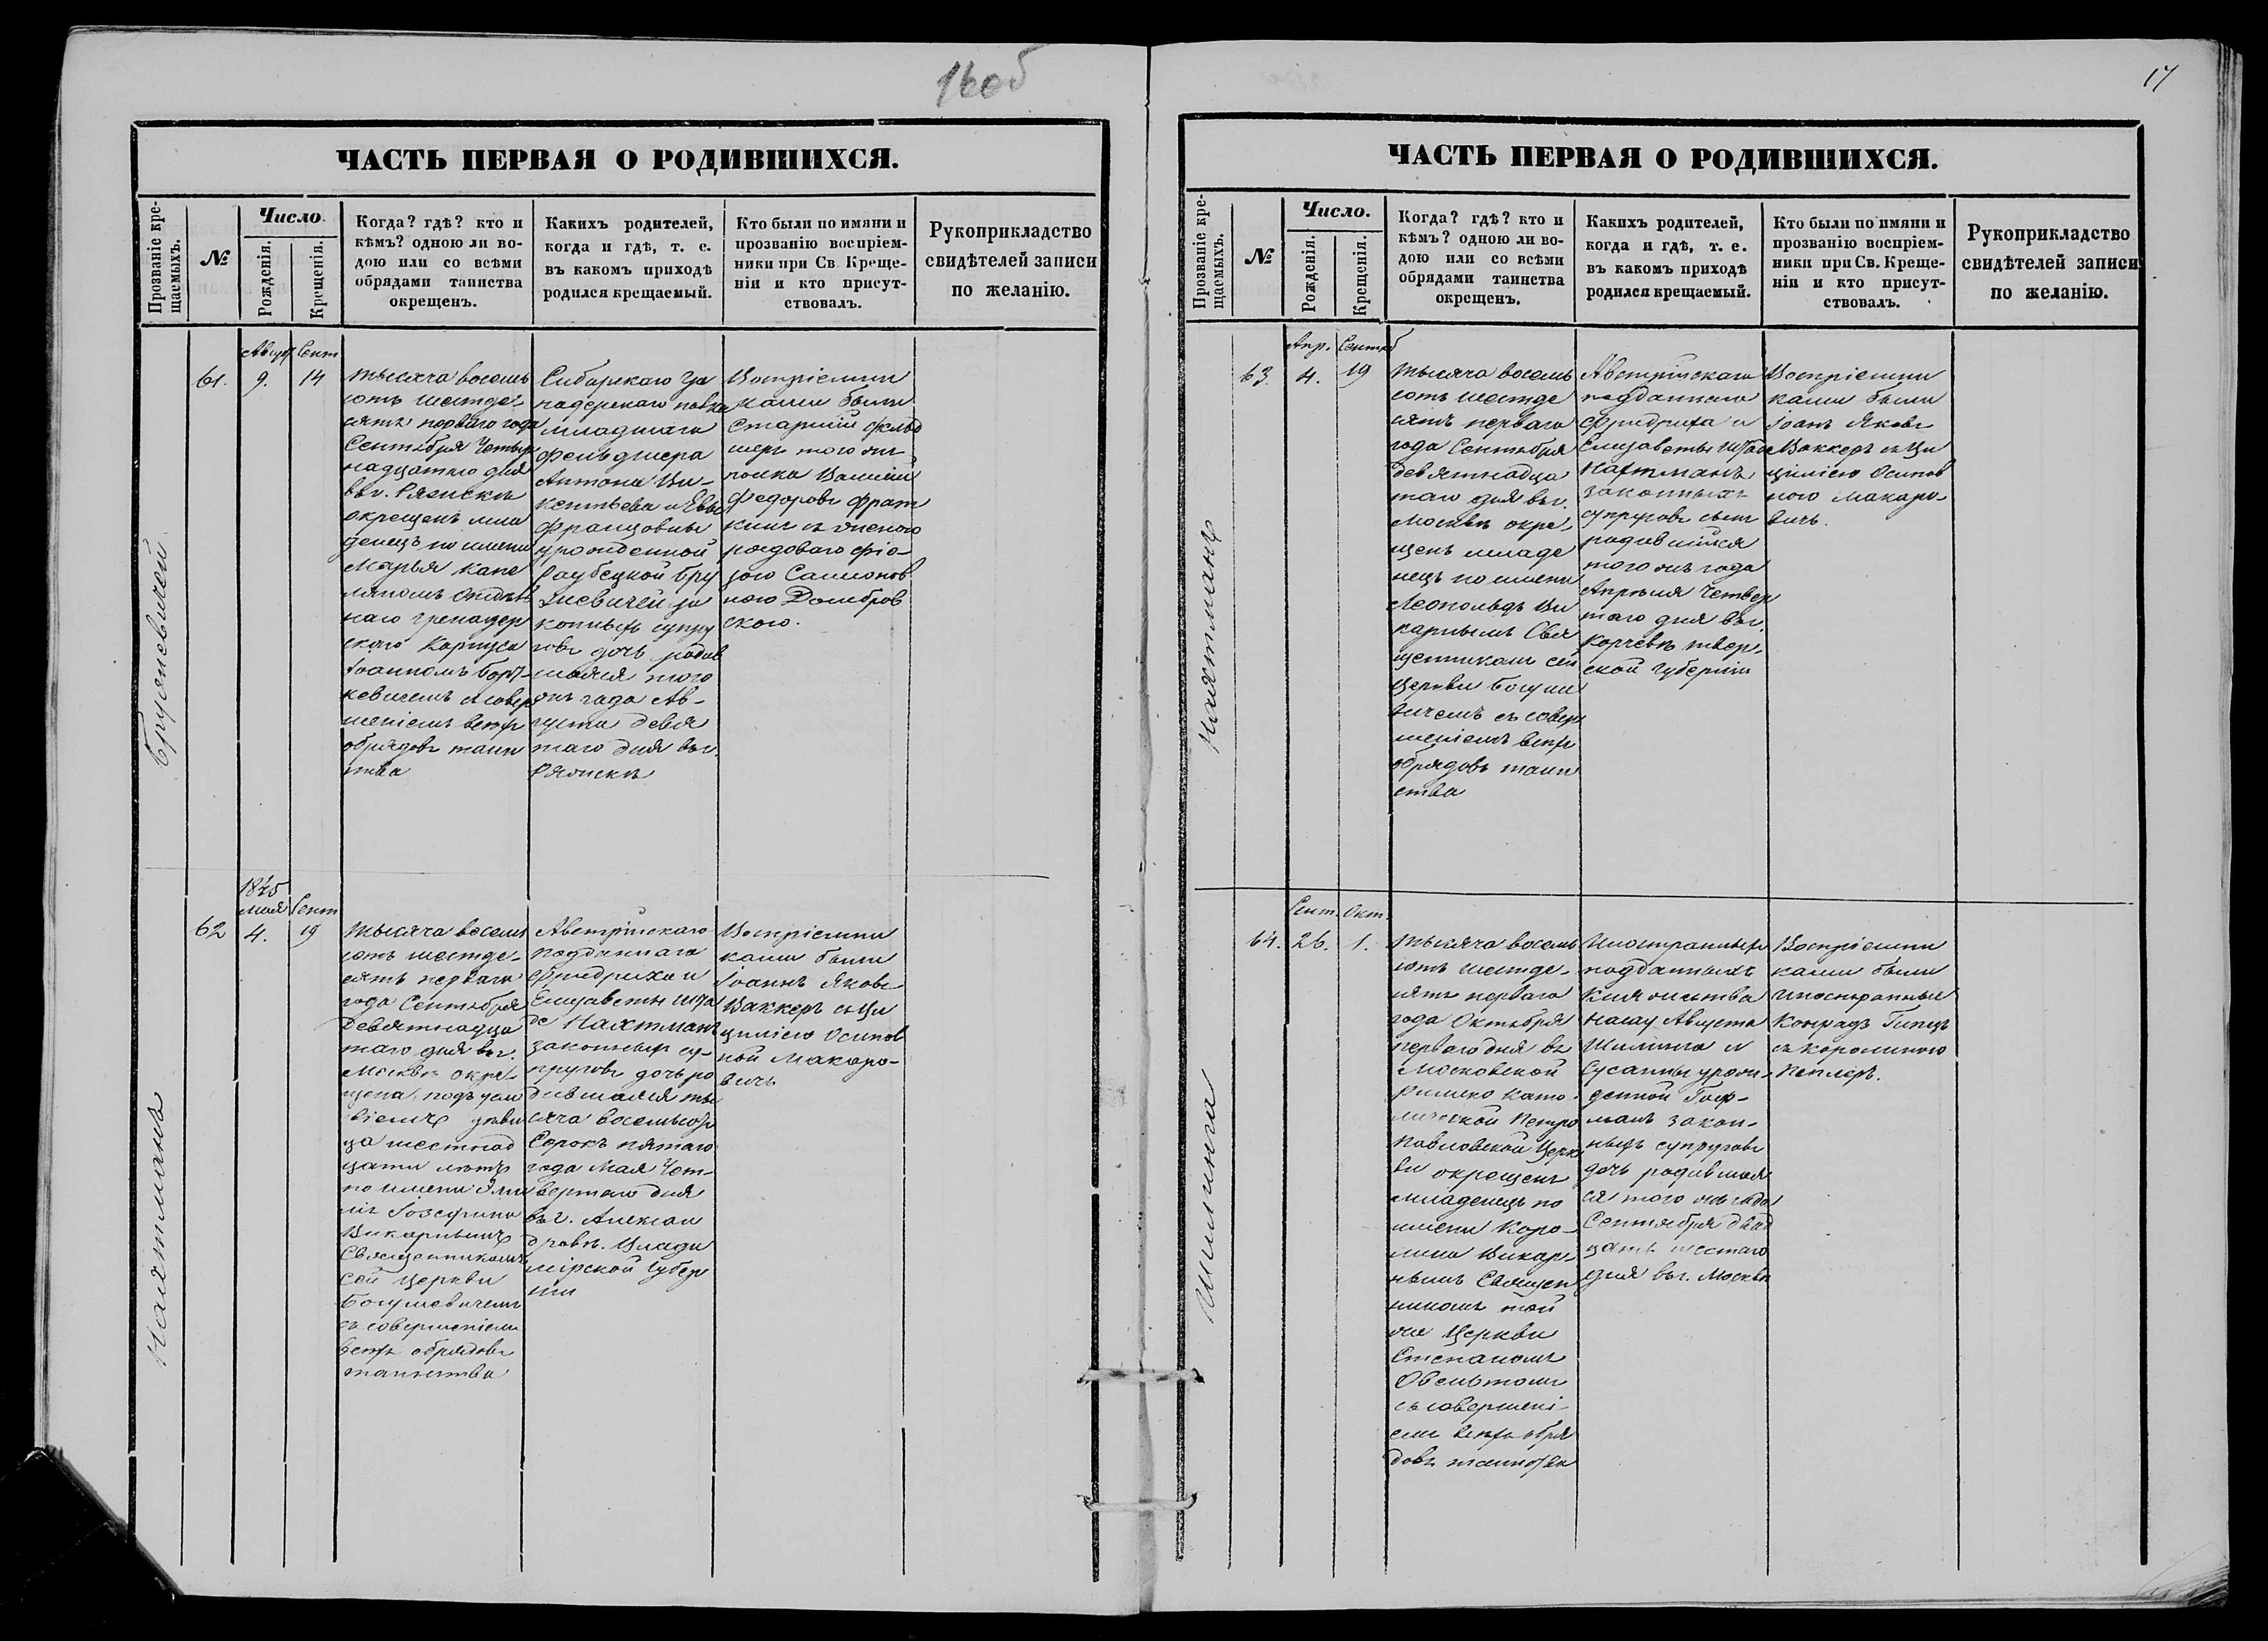 16об
ЧАСТЬ ПЕРВАЯ О РОДИВШИХСЯ.
Прозваніе кре-
щаемыхъ.
№
Число
Рожденія.
Крещенія.
Когда? гдѣ? кто и
кѣмъ? одною ли во-
дою или со всѣми
обрядами таинства
окрещенъ.
Какихъ родителей,
когда и гдѣ, т. е.
въ какомъ приходѣ
родился крещаемый.
Кто были по имяни и
прозванію воспріем-
ники при Св. Креще-
ніи и кто присут-
ствовалъ.
Рукоприкладство
свидѣтелей записи
по желанію.
Август Сент
61.
9.
14
Тысяча восемь
сотъ шестьде-
сятъ перваго года
Сентября Четыр
надцатаго дня
въ г. Ряжскѣ
окрещенъ мла
денецъ по имени
Марья капе
ляномъ Отдѣль
наго гренадер
скаго Корпуса
Іоанномъ
съ совер
шеніемъ всѣхъ
обрядовъ таин
ства
Сибирскаго Гре
надерскаго полка
младшаго
фельдшера
Антона Ви-
кентьева и Евы
Францовны
урожденной
за
конныхъ супру
говъ дочь родив
шаяся того
жъ года Ав-
густа девя
таго дня въ г.
Ряжскѣ
Воспріемни
ками были
Старшій фельд
шеръ того жъ
полка Василій
Федоровъ
съ женою
рядоваго
Самсонов
ною Домбров
скою.
1845
мая Сент
62
4.
19
Тысяча восемь
сотъ шестьде-
сятъ перваго
года Сентября
Девятнадца
таго дня въ г.
Москвѣ окре-
щена, подъ усло
віемъ дѣви
ца шестнад
цати лѣтъ
по имени Эми
лія Іозефина
Викарнымъ
Священникомъ
сей Церкви
Богушевичемъ
съ совершеніемъ
всѣхъ обрядовъ
таинства
Австрійскаго
подданнаго
Фридриха и
Елизаветы
Нахтманъ
законныхъ су-
пруговъ дочь ро
дившаяся ты
сяча восемьсотъ
Сорокъ пятаго
года Мая Чет-
вертаго дня
въ г. Алексан
дровѣ. Влади
мірской Губер
ніи
Воспріемни
ками были
Іоаннъ Яковъ
Ваккеръ съ Це
циліею Осипов
ной Макаро-
вичъ
Нахтманъ
17
ЧАСТЬ ПЕРВАЯ О РОДИВШИХСЯ.
Прозваніе кре-
щаемыхъ.
№
Число.
Рожденія.
Крещенія.
Когда? гдѣ? кто и
кѣмъ? одною ли во-
дою или со всѣми
обрядами таинства
окрещенъ.
Какихъ родителей,
когда и гдѣ, т. е.
въ какомъ приходѣ
родился крещаемый.
Кто были по имяни и
прозванію воспріем-
ники при Св. Креще-
ніи и кто присут-
ствовалъ.
Рукоприкладство
свидѣтелей записи
по желанію.
Апр. Сентяб
63.
4.
19
Тысяча восемь
сотъ шестьде
сятъ перваго
года Сентября
девятнадца
таго дня въ г.
Москвѣ окре-
щенъ младе
нецъ по имени
Леопольдъ Ви
карнымъ Свя
щенникомъ сей
Церкви Богуше
вичемъ съ совер
шеніемъ всѣхъ
обрядовъ таин
ства
Австрійскаго
подданнаго
Фридриха и
Елизаветы
Нахтманъ
законныхъ
супруговъ сынъ
родившійся
того жъ года
Апрѣля Четвер
таго дня въ г.
Корчевѣ твер-
ской Губерніи
Воспріемни
ками были
Іоанъ Яковъ
Ваккеръ съ Це
циліею Осипов
ною Макаро-
вичъ.
Нахтманъ
Сент. Окт.
64.
26.
1.
Тысяча восемь
сотъ шестьде-
сятъ перваго
года Октября
перваго дня въ
Московской
Римско Като-
лической Петро
Павловской Церк
ви окрещенъ
младенецъ по
имени Каро-
лина Викар-
нымъ Священ
никомъ той
же Церкви
Степаномъ
съ совершені-
емъ всѣхъ обря
довъ таинства
Иностранныхъ
подданныхъ
Княжества
Насау Августа
Шилинга и
Сусанны урож-
денной Гоф-
манъ закон-
ныхъ супруговъ
дочь родившая
ся того жъ года
Сентября двад
цать шестаго
дня въ г. Москвѣ
Воспріемни
ками были
иностранный
Конрадъ
съ Каролиною
Кеплеръ.
Шилинга